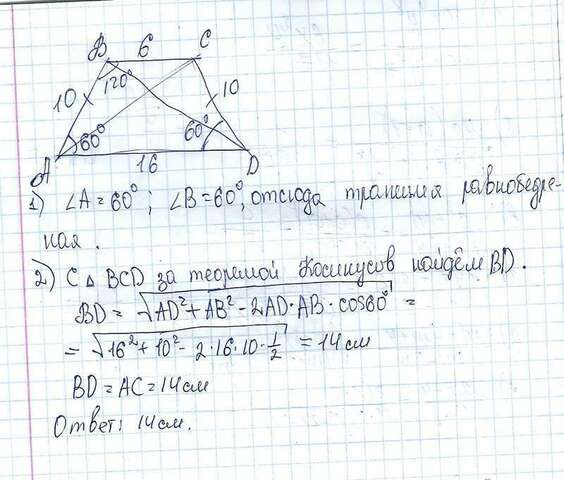 B 6 C
10 120° 10
60° 60°
A 16 D
1) ∠A = 60°; ∠B = 60°, отсюда трапеция равнобедре-
ная.
2) С △ BCD за теоремой Косинусов найдём BD.
BD = √AD² + AB² - 2AD·AB·cos60° =
= √16² + 10² - 2·16·10·1/2 = 14 см
BD = AC = 14 см
Ответ: 14 см.